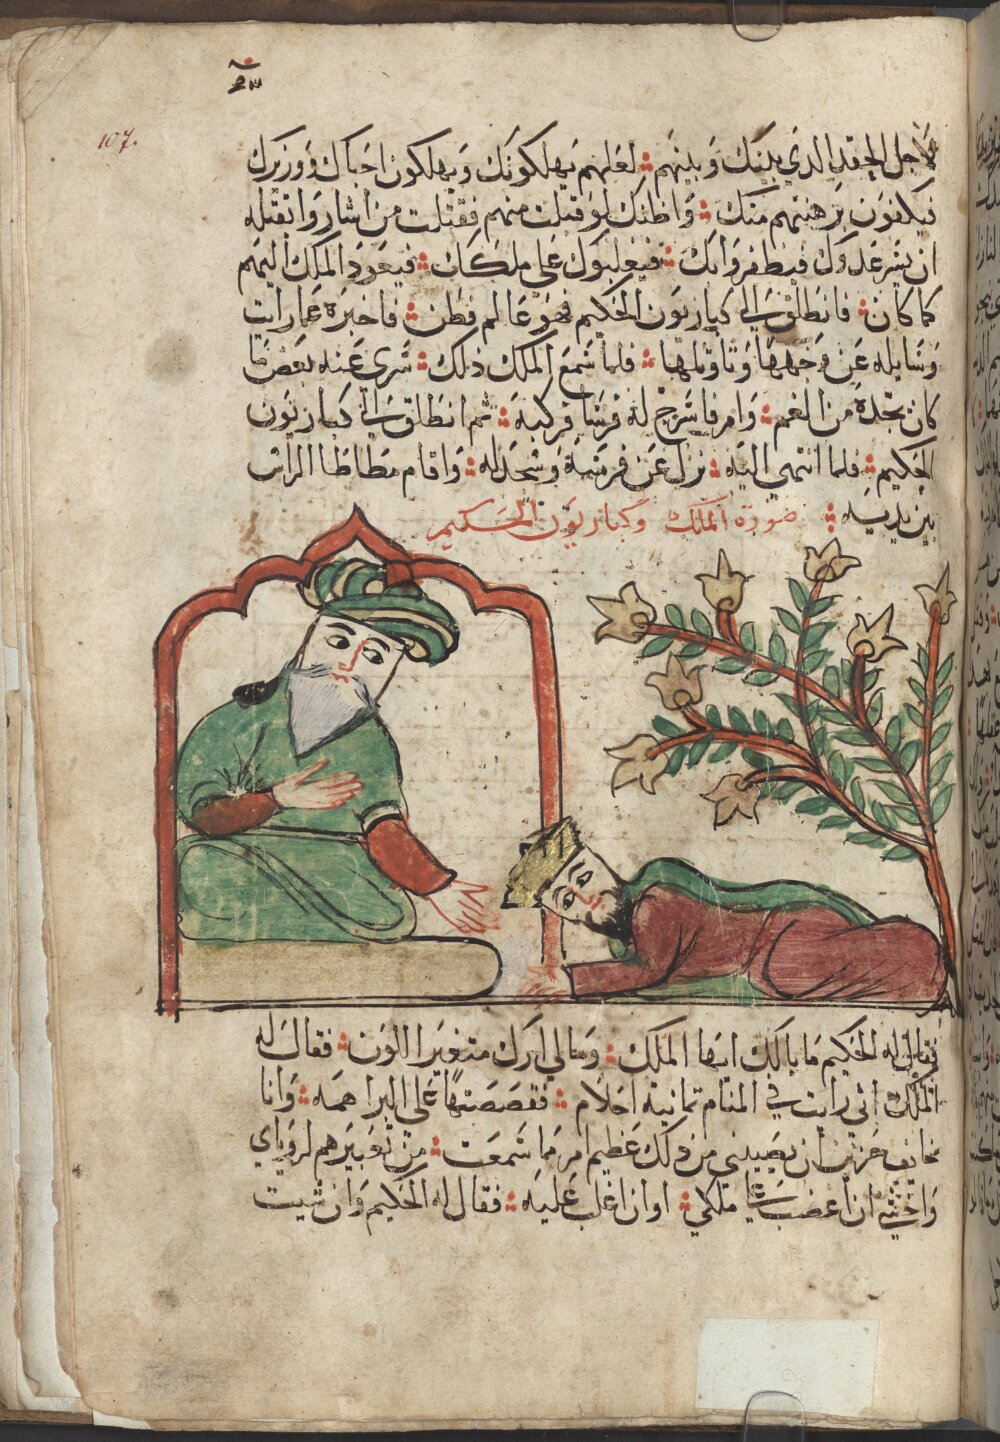 107.
لاجل الحقد الذي بينك وبينهم لعلهم يهلكونك ويهلكون احباك ووزيرك
فيكفون برهنتهم منك واظنك لو قتلت منهم فقتلت من اشاروا بقتله
ان يسر عدوك فيظفروا بك فيغلبوك على ملكك فيعود الملك اليهم
كما كان فانطلق الي كباريون الحكيم فهو عالم فطن فاخبره عما رايت
وسايله عن وجهها وتاويلها فلما سمع الملك ذلك سري عنه بعض ما
كان يجده من الغم وامر فاسرج له فرسا فركبه ثم انطلق الي كباريون
الحكيم فلما انتهى اليه نزل عن فرسه وسجد له واقام مطاطا الراس
بين يديه صورة الملك وكباريون الحكيم
فقال له الحكيم ما بالك ايها الملك ومالي اراك متغير اللون فقال له
الملك اني رايت في المنام ثمانية احلام فقصصتها على البراهمه وانا
خايف من ان يصيبني من ذلك عظيم امر مما سمعت من تعبيرهم لروياي
واخشي ان اغضب علي ملكي او ان اغلب عليه فقال له الحكيم وان شيت